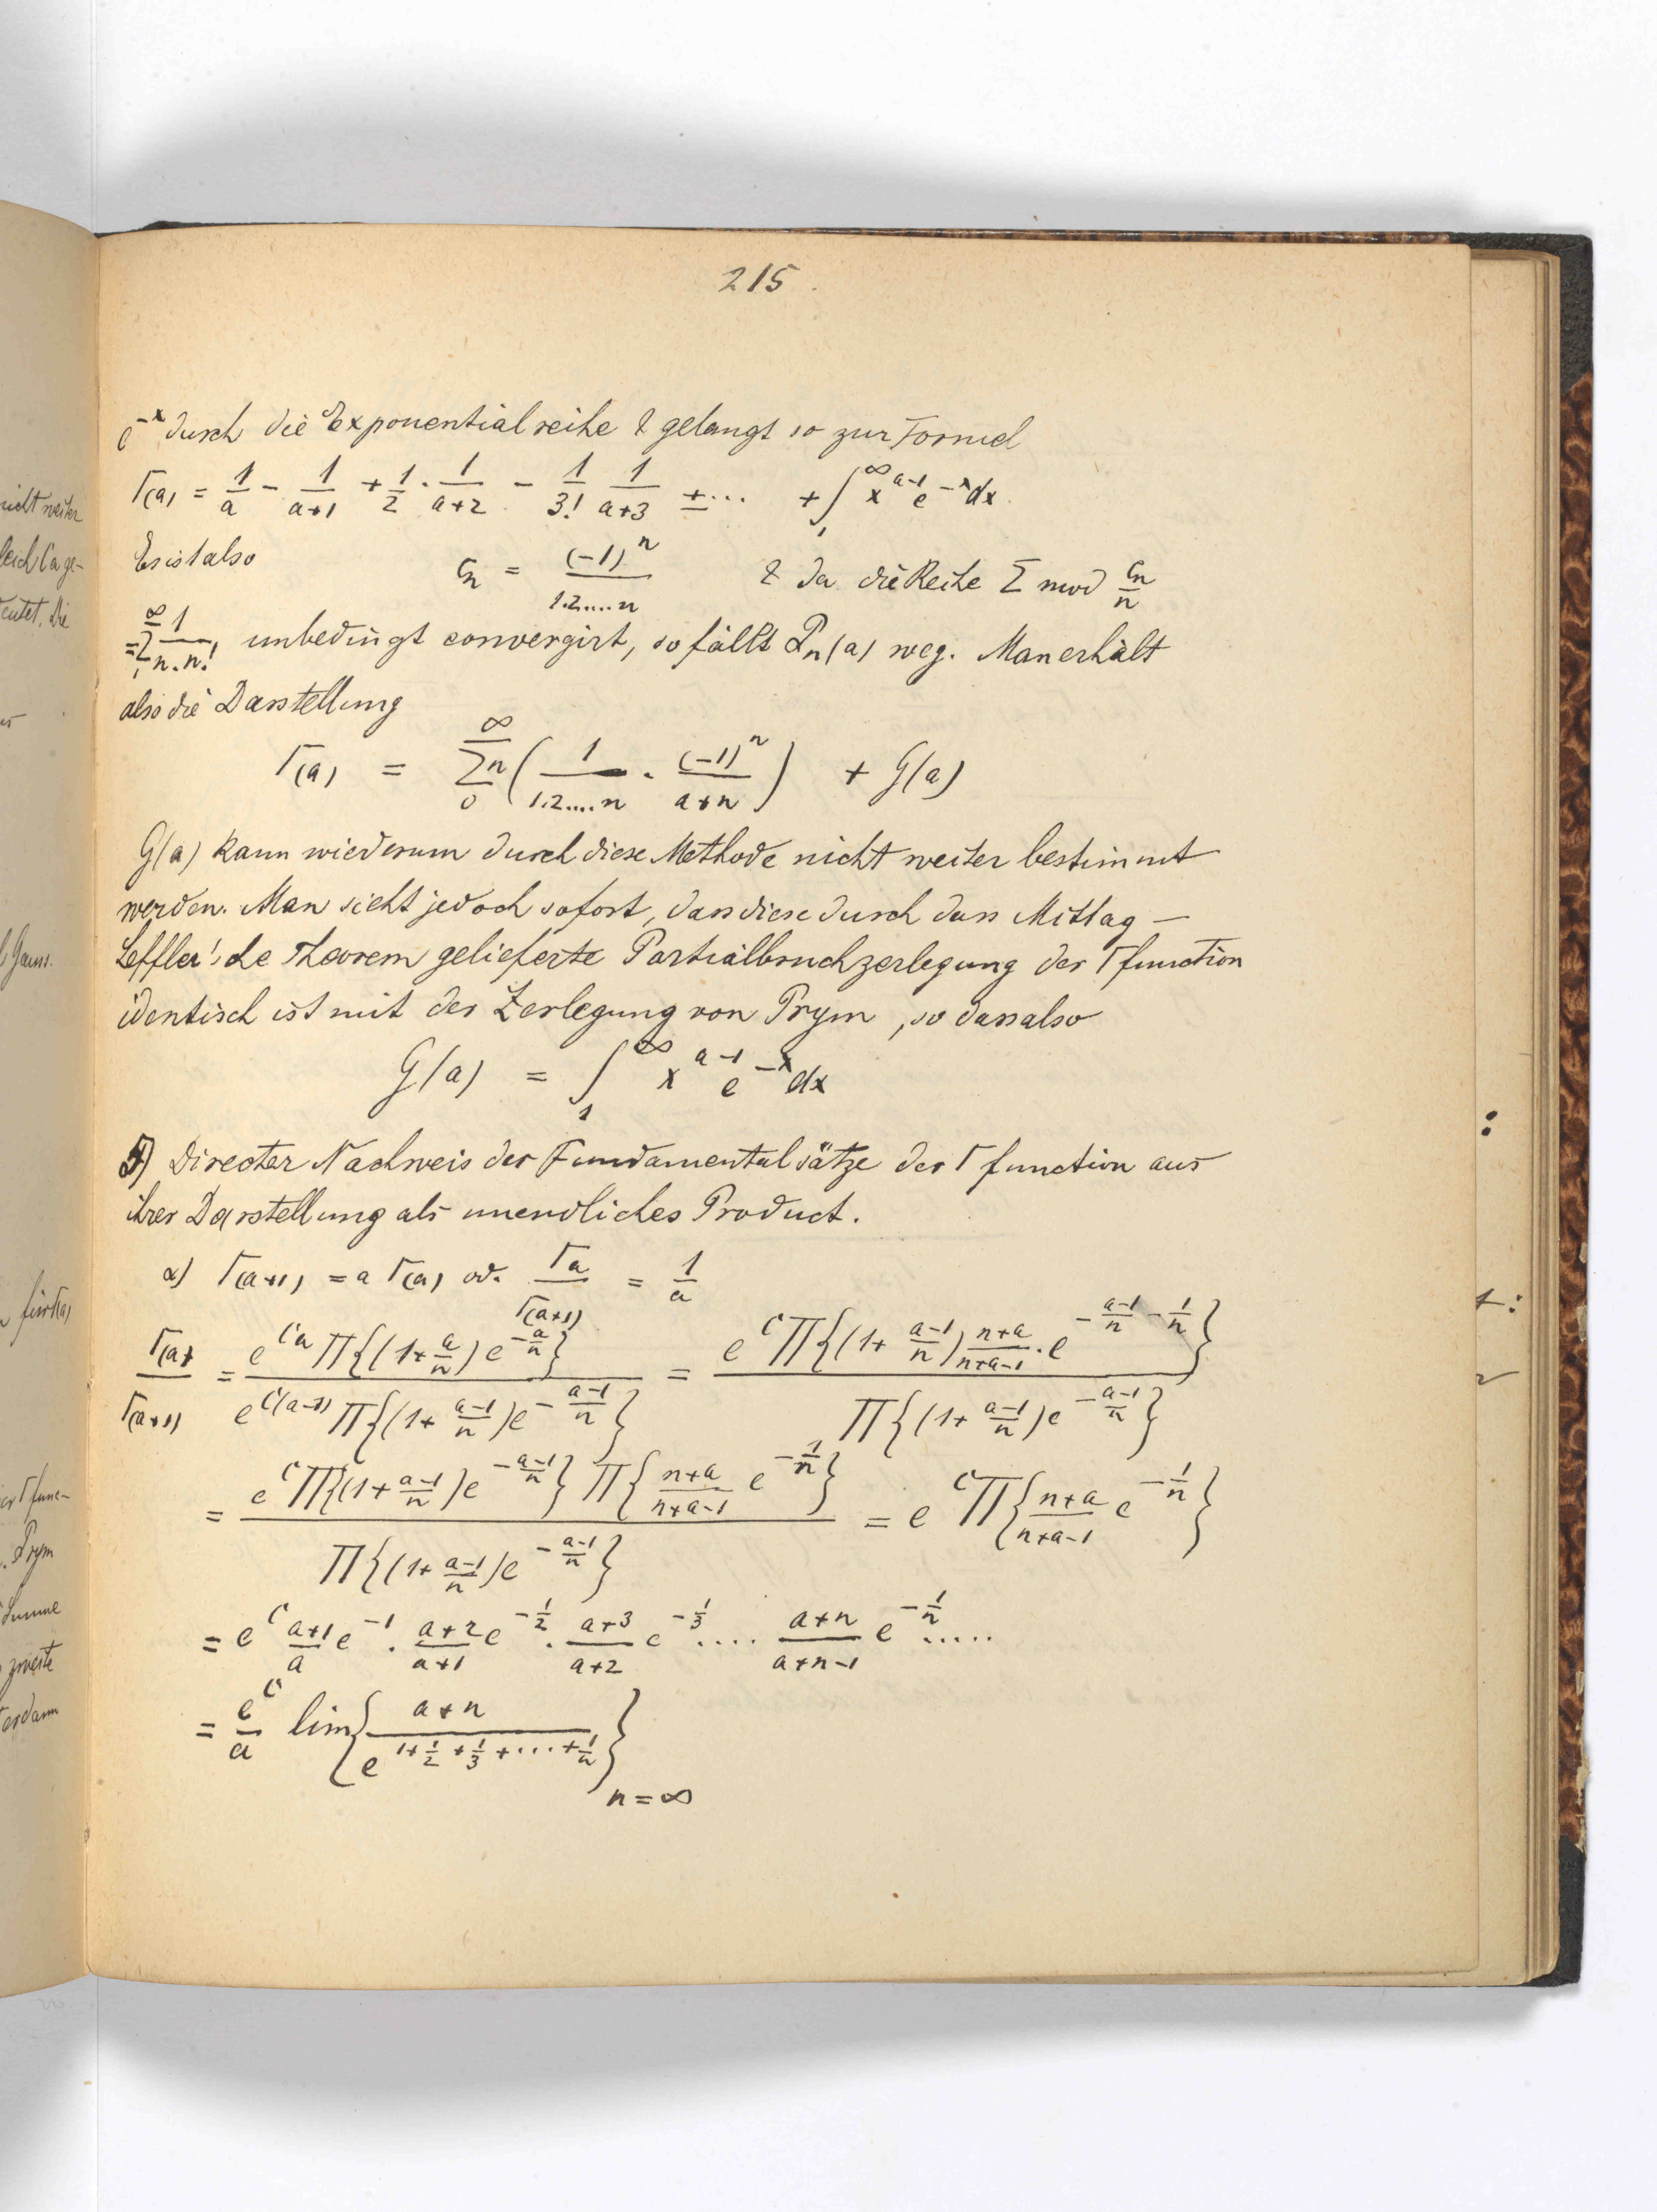 215.
e^{-x} durch die Exponentialreihe & gelangt so zur Formel
Γ(a) = 1/a - 1/(a+1) + 1/2 · 1/(a+2) - 1/3! 1/(a+3) ± ... + ∫_1^∞ x^{a-1} e^{-x} dx.
Es ist also c_n = (-1)^n / 1.2....n & da die Reihe Σ mod c_n/n
= Σ_1^∞ 1/(n.n!) unbedingt convergirt, so fällt P_n(a) weg. Man erhält
also die Darstellung
Γ(a) = Σ_0^∞ n ( 1/(1.2....n) · (-1)^n/(a+n) ) + G(a)
G(a) kann wiederum durch diese Methode nicht weiter bestimmt
werden. Man sieht jedoch sofort, dass diese durch das Mittag-
Leffler'sche Theorem gelieferte Partialbruchzerlegung der Γfunction
identisch ist mit der Zerlegung von Prym, so dass also
G(a) = ∫_1^∞ x^{a-1} e^{-x} dx
5) Directer Nachweis der Fundamentalsätze der Γfunction aus
ihrer Darstellung als unendliches Product.
α) Γ(a+1) = a Γ(a) od. Γa/Γ(a+1) = 1/a
Γ(a)/Γ(a+1) = e^{Ca} Π{(1+a/n) e^{-a/n}} / e^{C(a-1)} Π{(1+(a-1)/n) e^{-(a-1)/n}} = e^C Π{(1+(a-1)/n) (n+a)/(n+a-1) · e^{-(a-1)/n - 1/n}} / Π{(1+(a-1)/n) e^{-(a-1)/n}}
= e^C Π{(1+(a-1)/n) e^{-(a-1)/n}} Π{(n+a)/(n+a-1) e^{-1/n}} / Π{(1+(a-1)/n) e^{-(a-1)/n}} = e^C Π{(n+a)/(n+a-1) e^{-1/n}}
= e^C (a+1)/a e^{-1} · (a+2)/(a+1) e^{-1/2} · (a+3)/(a+2) e^{-1/3} .... (a+n)/(a+n-1) e^{-1/n} .....
= e^C/a lim{ (a+n) / e^{1+1/2+1/3+...+1/n} }_{n=∞}